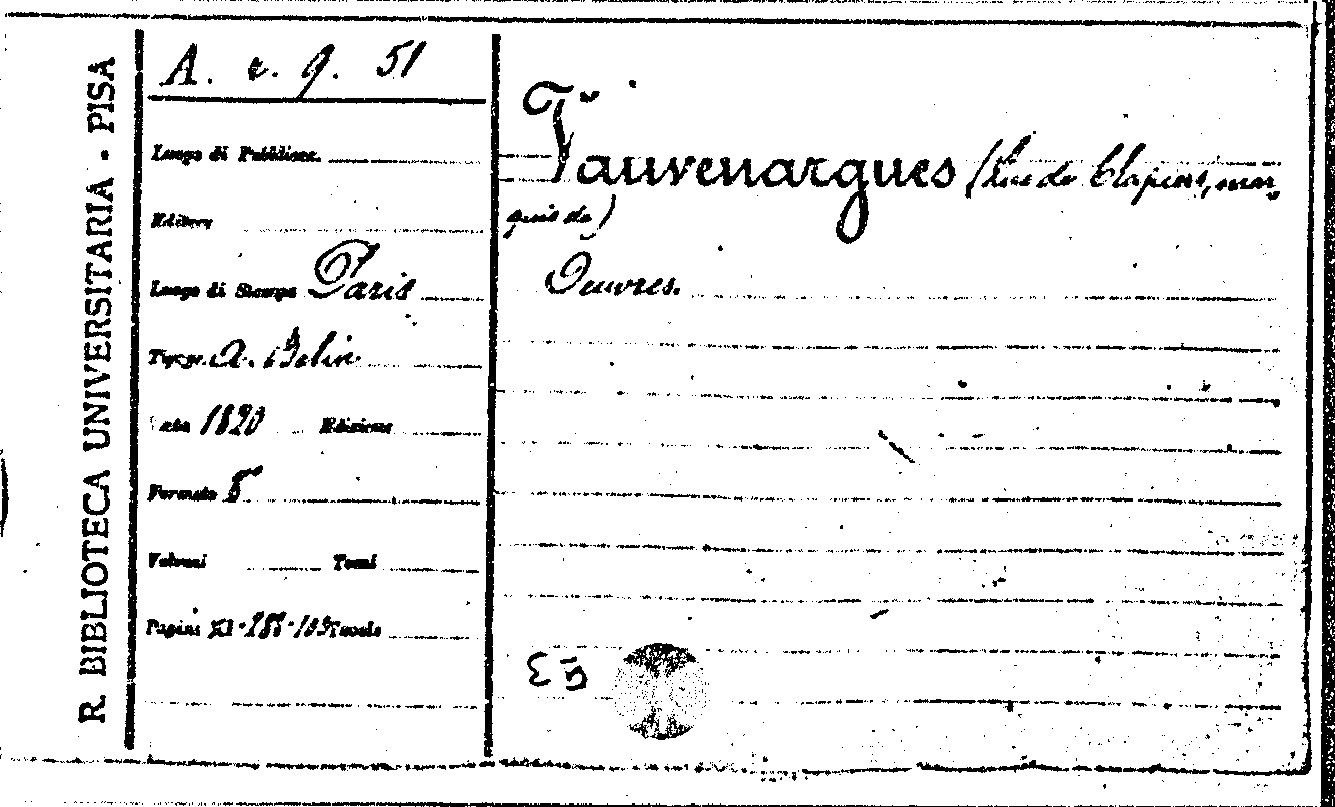 R. BIBLIOTECA UNIVERSITARIA - PISA
A. e. 9. 51
Luogo di Pubblicaz.
Editore
Luogo di Stampa Paris
Tipogr. A. Belin
Data 1820 Edizione
Formato 8
Volumi Tomi
Pagine XI-288-103 Tavole
Vauvenargues (Luc de Clapiers, mar
quis de)
Oeuvres.